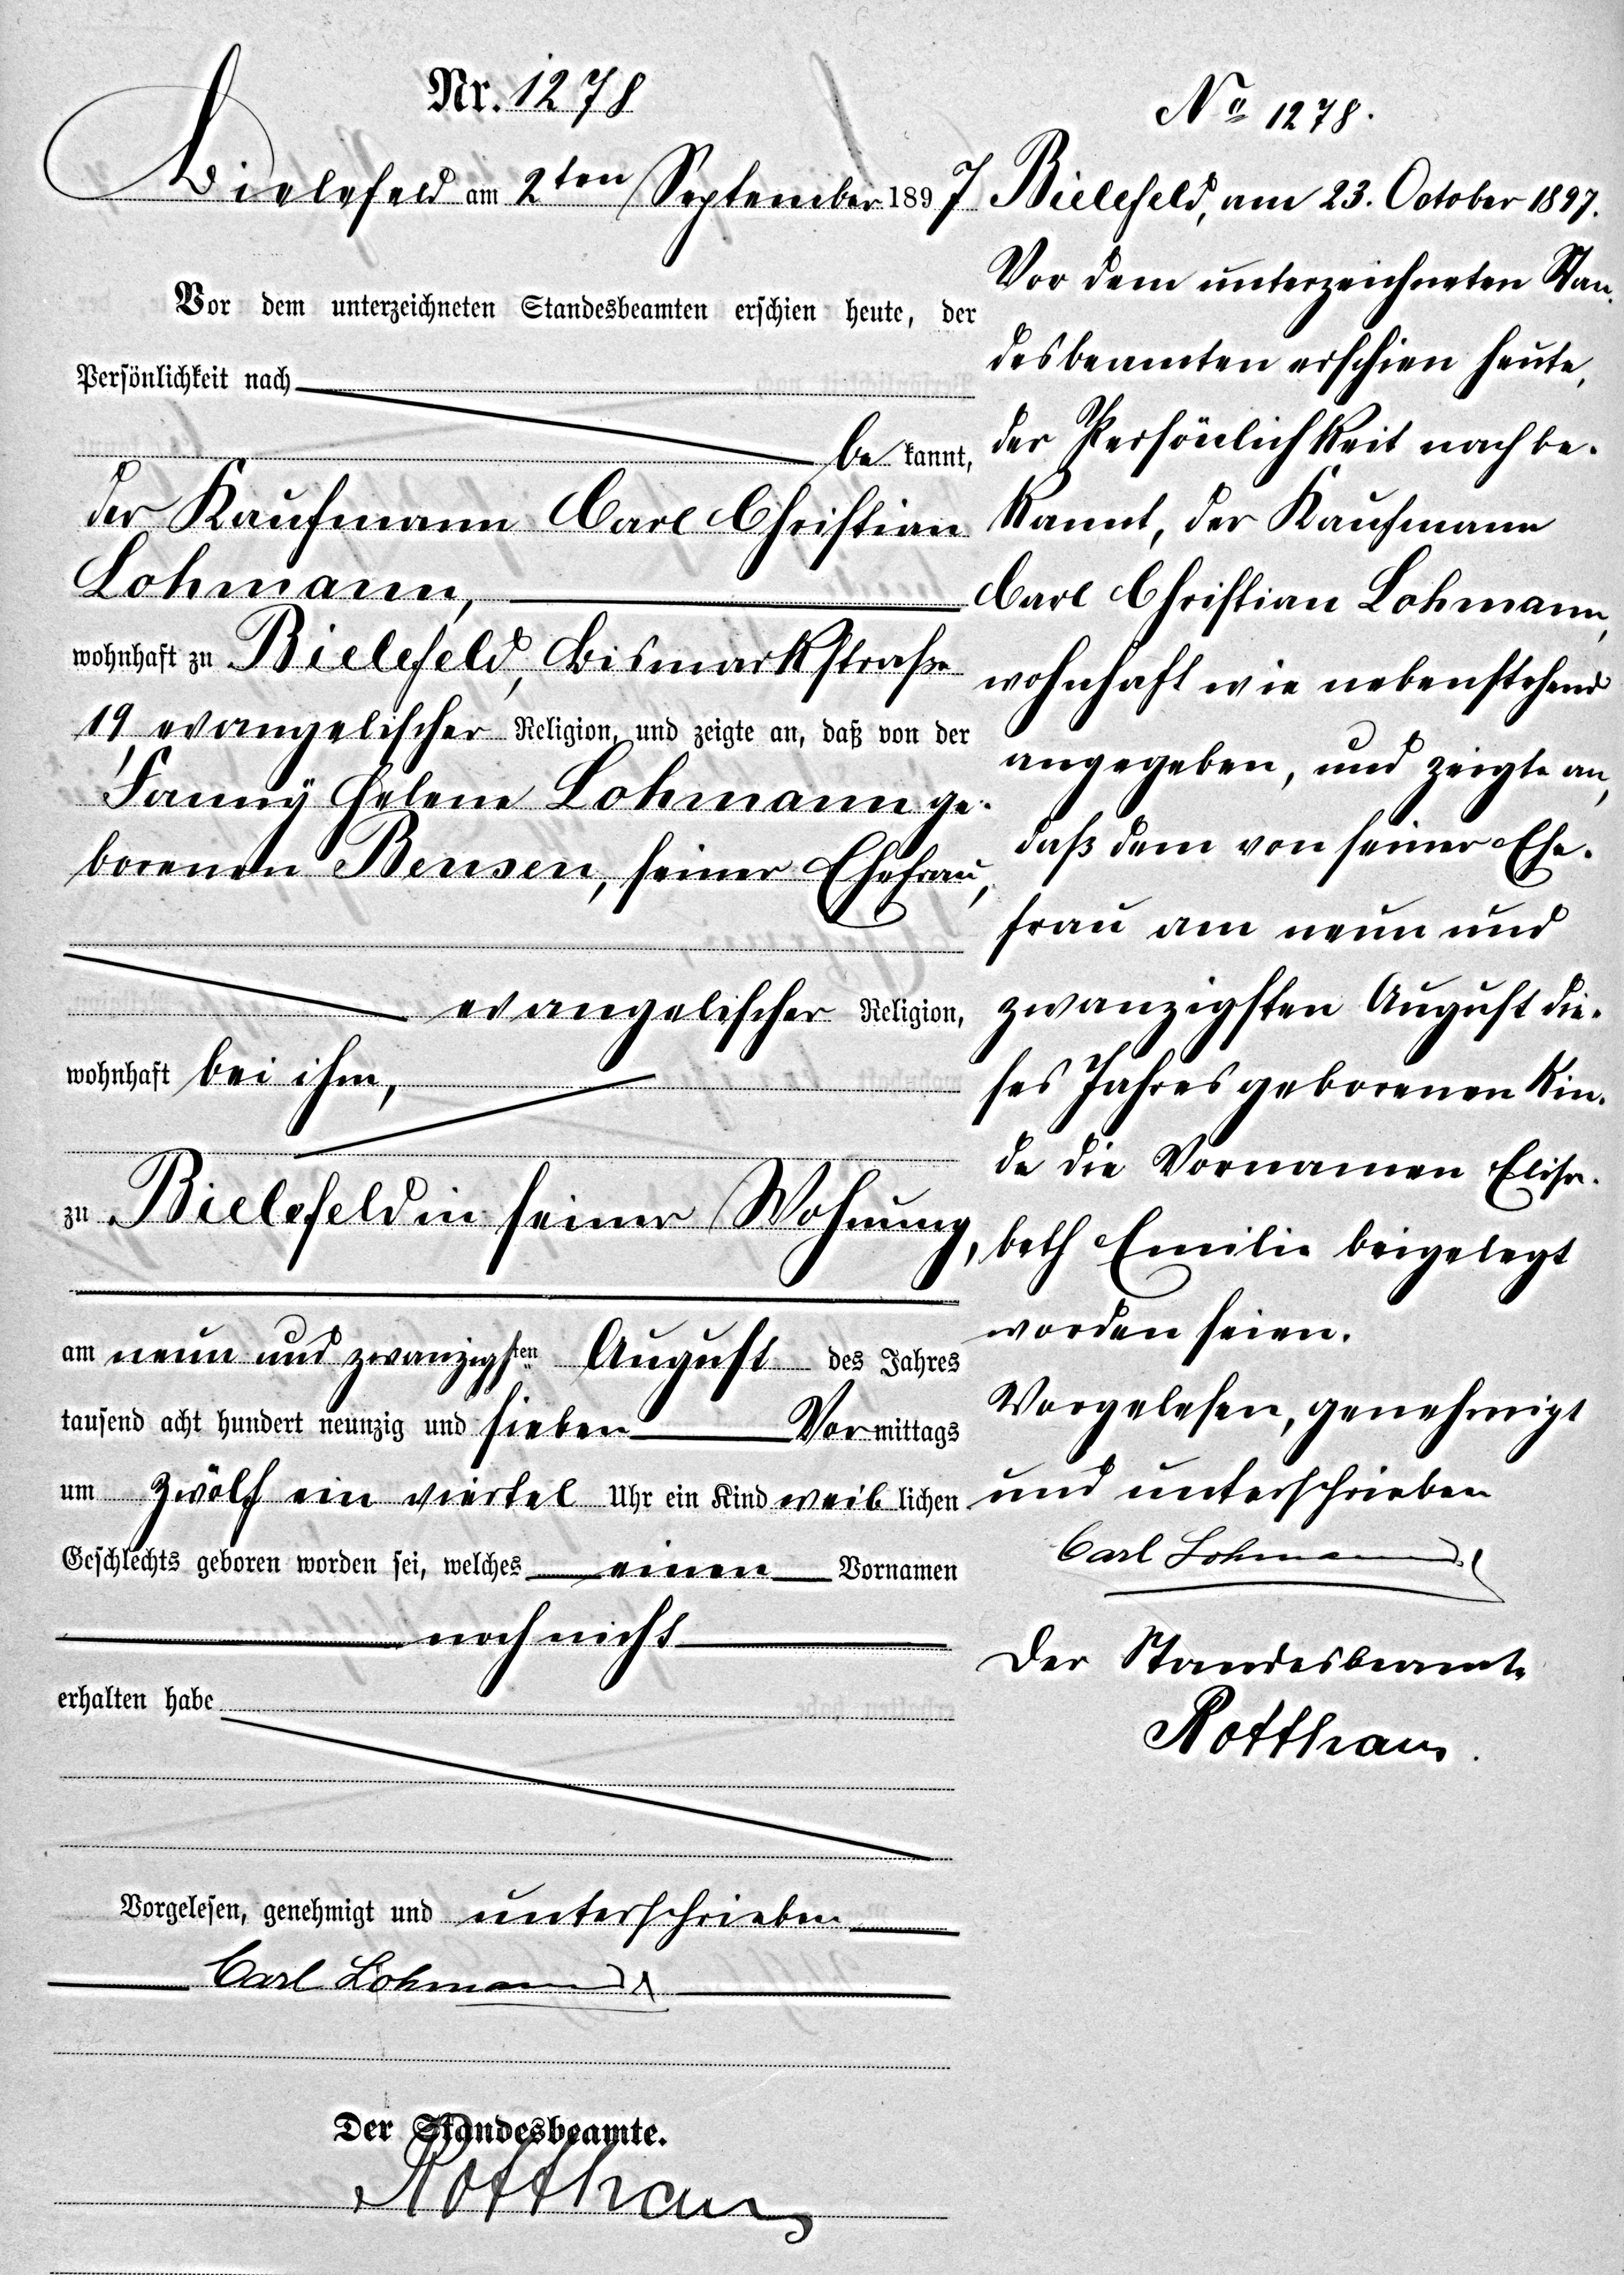 Nr. 1278
Bielefeld am 2ten September 1897
Vor dem unterzeichneten Standesbeamten erschien heute, der
Persönlichkeit nach
be kannt,
der Kaufmann Carl Christian
Lohmann,
wohnhaft zu Bielefeld, Bismarkstraße
19, evangelischer Religion, und zeigte an, daß von der
Fanny Helene Lohmann ge-
borenen Bensen, seiner Ehefrau,
evangelischer Religion,
wohnhaft bei ihm,
zu Bielefeld in seiner Wohnung,
am neun und zwanzigsten August des Jahres
tausend acht hundert neunzig und sieben Vormittags
um zwölf ein viertel Uhr ein Kind weiblichen
Geschlechts geboren worden sei, welches einen Vornamen
noch nicht
erhalten habe
Vorgelesen, genehmigt und unterschrieben
Carl Lohmann
Der Standesbeamte.
Rotthaus
No 1278.
Bielefeld, am 23. October 1897.
Vor dem unterzeichneten Stan-
desbeamten erschien heute,
der Persönlichkeit nach be-
kannt, der Kaufmann
Carl Christian Lohmann,
wohnhaft wie nebenstehend
angegeben, und zeigte an,
daß dem von seiner Ehe-
frau am neun und
zwanzigsten August die-
ses Jahres geborenen Kin-
de die Vornamen Elisa-
beth Emilie beigelegt
worden seien.
Vorgelesen, genehmigt
und unterschrieben
Carl Lohmann
Der Standesbeamte
Rotthaus.